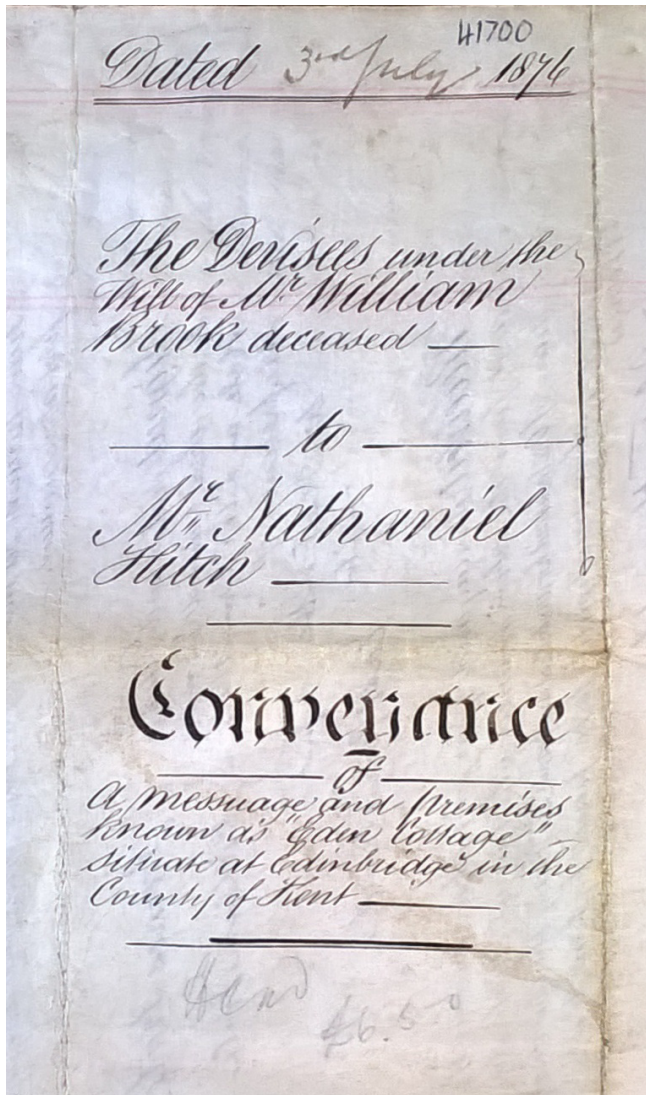 41700
Dated 3rd July 1876
The Devisees under the
Will of Mr William
Brook deceased
to
Mr Nathaniel
Hitch
Conveyance
of
A messuage and premises
known as "Eden Cottage"
situate at Edinbridge in the
County of Kent
£6.50